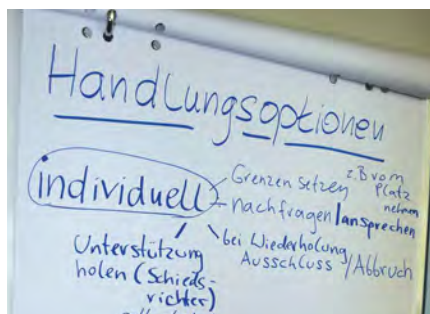 Handlungsoptionen
individuell
Grenzen setzen z.B vom
Platz
nehmen
nachfragen/ansprechen
bei Wiederholung
Ausschluss/Abbruch
Unterstützung
holen (Schieds-
richter)